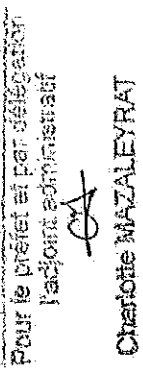 Pour le préfet et par délégation
l'adjoint administratif
Charlotte MAZALEYRAT